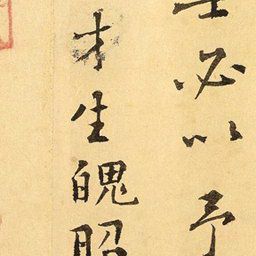 必以予
才生魄照